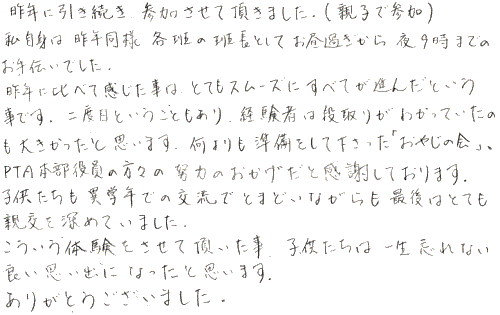 昨年に引き続き 参加させて頂きました。(親子で参加)
私自身は昨年同様 各班の班長としてお昼過ぎから夜9時までの
お手伝いでした。
昨年に比べて感じた事は とてもスムーズに すべてが進んだという
事です。二度目ということもあり、経験者は段取りがわかっていたの
も大きかったと思います。何よりも準備をして下さった「おやじの会」、
PTA本部役員の方々の努力のおかげだと感謝しております。
子供たちも異学年での交流でとまどいながらも最後はとても
親交を深めていました。
こういう体験をさせて頂いた事 子供たちは一生忘れない
良い思い出になったと思います。
ありがとうございました。